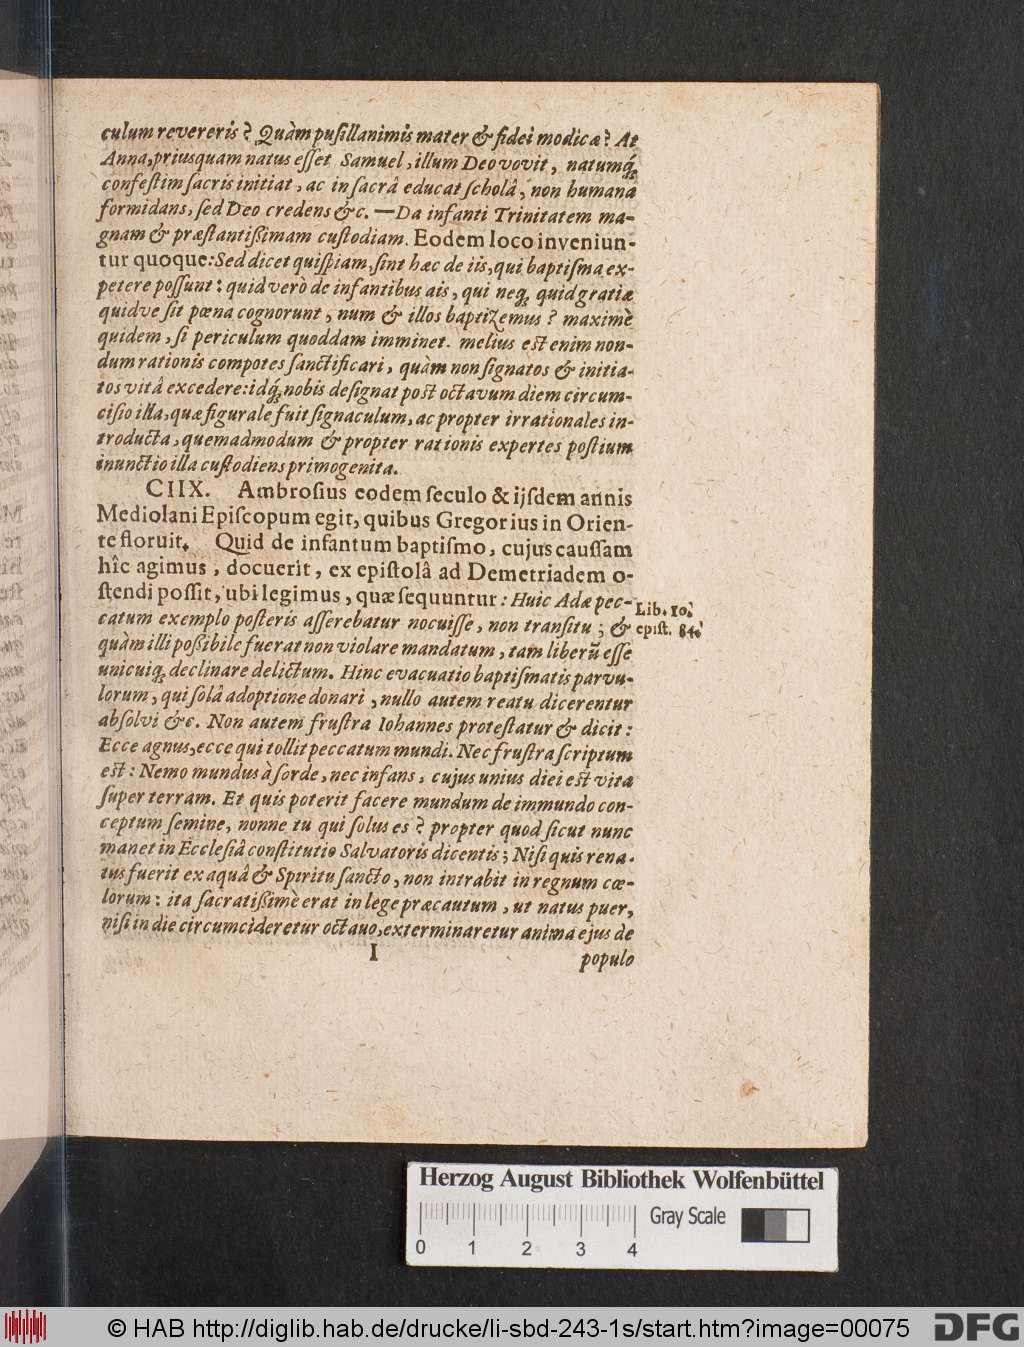 culum revereris? Quàm pusillanimis mater & fidei modicæ? At
Anna, priusquam natus esset Samuel, illum Deo vovit, natumq́;
confestim sacris initiat, ac in sacrâ educat scholâ, non humana
formidans, sed Deo credens &c. — Da infanti Trinitatem ma-
gnam & præstantißimam custodiam. Eodem loco inveniun-
tur quoque: Sed dicet quispiam, sint hæc de iis, qui baptisma ex-
petere possunt: quid verò de infantibus ais, qui neq; quid gratiæ
quidve sit pœna cognorunt, num & illos baptizemus? maximè
quidem, si periculum quoddam imminet. melius est enim non-
dum rationis compotes sanctificari, quàm non signatos & initia-
tos vitâ excedere: idq́; nobis designat post octavum diem circum-
cisio illa, quæ figurale fuit signaculum, ac propter irrationales in-
troducta, quemadmodum & propter rationis expertes postium
inunctio illa custodiens primogenita.
CIIX. Ambrosius eodem seculo & ijsdem annis
Mediolani Episcopum egit, quibus Gregorius in Orien-
te floruit. Quid de infantum baptismo, cujus caussam
hîc agimus, docuerit, ex epistolâ ad Demetriadem o-
stendi possit, ubi legimus, quæ sequuntur: Huic Adæ pec-
catum exemplo posteris asserebatur nocuisse, non transitu; &
quàm illi poßibile fuerat non violare mandatum, tam liberū esse
unicuiq; declinare delictum. Hinc evacuatio baptismatis parvu-
lorum, qui solâ adoptione donari, nullo autem reatu dicerentur
absolvi &c. Non autem frustra Iohannes protestatur & dicit:
Ecce agnus, ecce qui tollit peccatum mundi. Nec frustra scriptum
est: Nemo mundus à sorde, nec infans, cujus unius diei est vita
super terram. Et quis poterit facere mundum de immundo con-
ceptum semine, nonne tu qui solus es? propter quod sicut nunc
manet in Ecclesiâ constitutio Salvatoris dicentis; Nisi quis rena-
tus fuerit ex aquâ & Spiritu sancto, non intrabit in regnum cœ-
lorum: ita sacratißimè erat in lege præcautum, ut natus puer,
nisi in die circumcideretur octavo, exterminaretur anima ejus de
I populo
Lib. 10.
epist. 84.
Herzog August Bibliothek Wolfenbüttel
Gray Scale
0 1 2 3 4
© HAB http://diglib.hab.de/drucke/li-sbd-243-1s/start.htm?image=00075
DFG